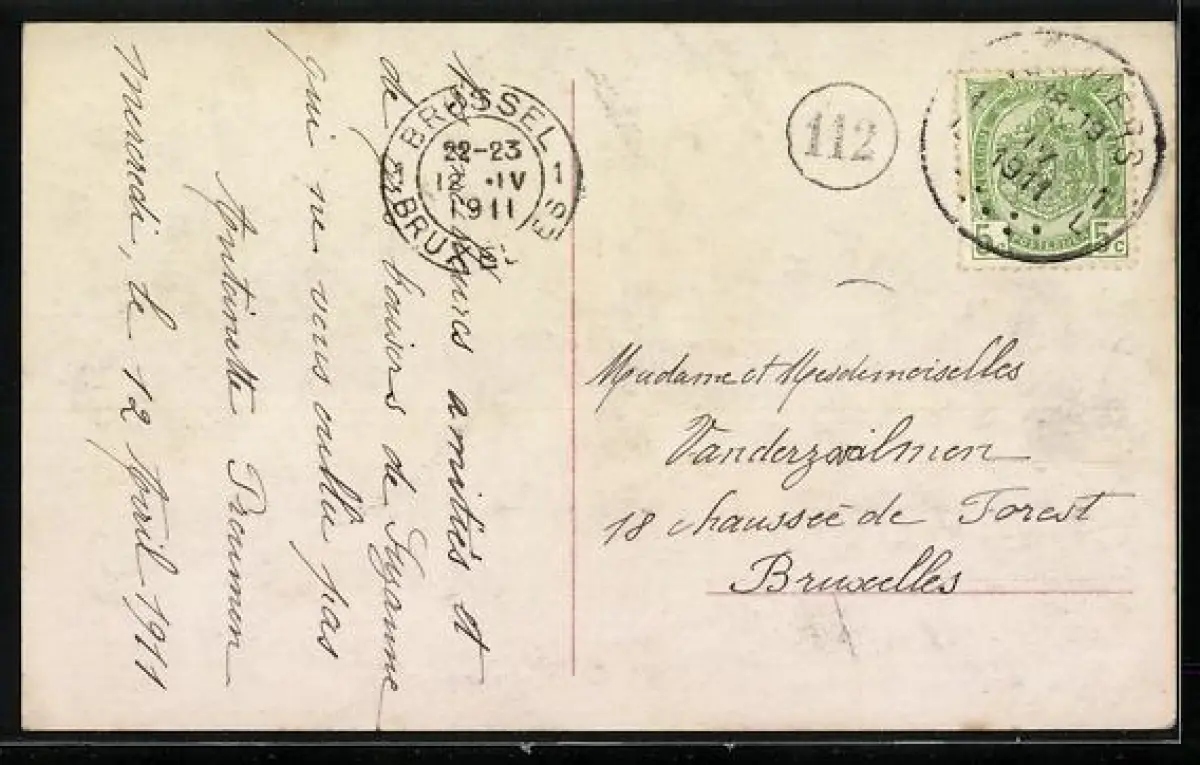 amitiés et
de bons baisers de Suzanne
qui ne vous oublie pas
Antoinette
mercredi, le 12 Avril 1911
BRUSSEL 1
22-23
12 IV
1911
BRUXELLES
112
1911
5 c
5 c
Madame et Mesdemoiselles
18 chaussée de Forest
Bruxelles